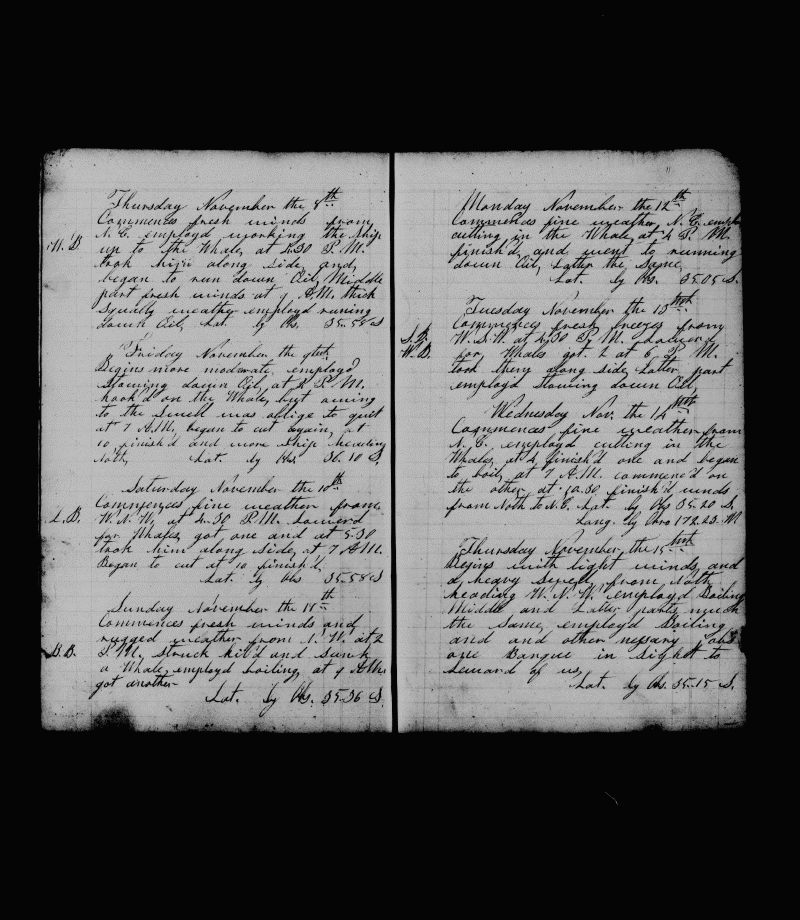 Thursday November the 8th
Commences fresh winds from
N. E. employd working the ship
W. B
up to the Whale, at 4.30 P. M.
took him along side, and
began to run down Oil, Middle
part fresh winds at 9 A.M. thick
squally weather employd runing
down Oil, Lat. by Obs. 35-58 S
Friday November the 9th
Begins more moderate, employd
Stowing down Oil, at 2 P. M.
hook'd on the Whale, but owing
to the Swell was oblige to quit
at 7 A.M. began to cut again, at
10 finish'd and wore Ship heading
North, Lat. by Obs 36.10 S.
Saturday November the 10th
Commences fine weather from
W. N. W. at 4-30 P. M. Lowerd
L. B.
for Whales, got one and at 5-30
took him along side, at 7 A.M.
Began to cut at 10 finish'd,
Lat. by Obs 35-58 S
Sunday November the 11th
Commences fresh winds and
rugged weather from N. W. at 2
B. B.
P. M. struck kill'd and Sunk
a Whale, employd boiling, at 9 A.M.
got another
Lat. by Obs. 35-36 S.
Monday November the 12th
Commences fine weather, N. E.
cutting in the Whale, at 4 P. M.
finish'd, and went to running
down Oil, Latter the Same,
Lat. by Obs. 35.05 S.
Tuesday November the 13th
Commences fresh breezes from
W. S. W. at 4.30 P. M. Lowerd
W. B.
for Whales got 2 at 6 P. M.
took them along side, Latter part
employd Stowing down Oil,
Wednesday Nov. the 14th
Commences fine weather from
N. E. employd cutting in the
Whales, at 4 finish'd one and began
to boil, at 7 A.M. commenc'd on
the other, at 10.30 finish'd winds
from North to N. E. Lat. by Obs 35-20 S.
Long. by Chro 172.23. W
Thursday November the 15th
Begins with light winds, and
a heavy Swell from North
heading W. N. W. employd Boiling
Middle and Latter parts much
the Same, employd Boiling
and and other nessary Jobs
one Barque in Sight to
Leeward of us,
Lat. by Obs. 35-15 S.